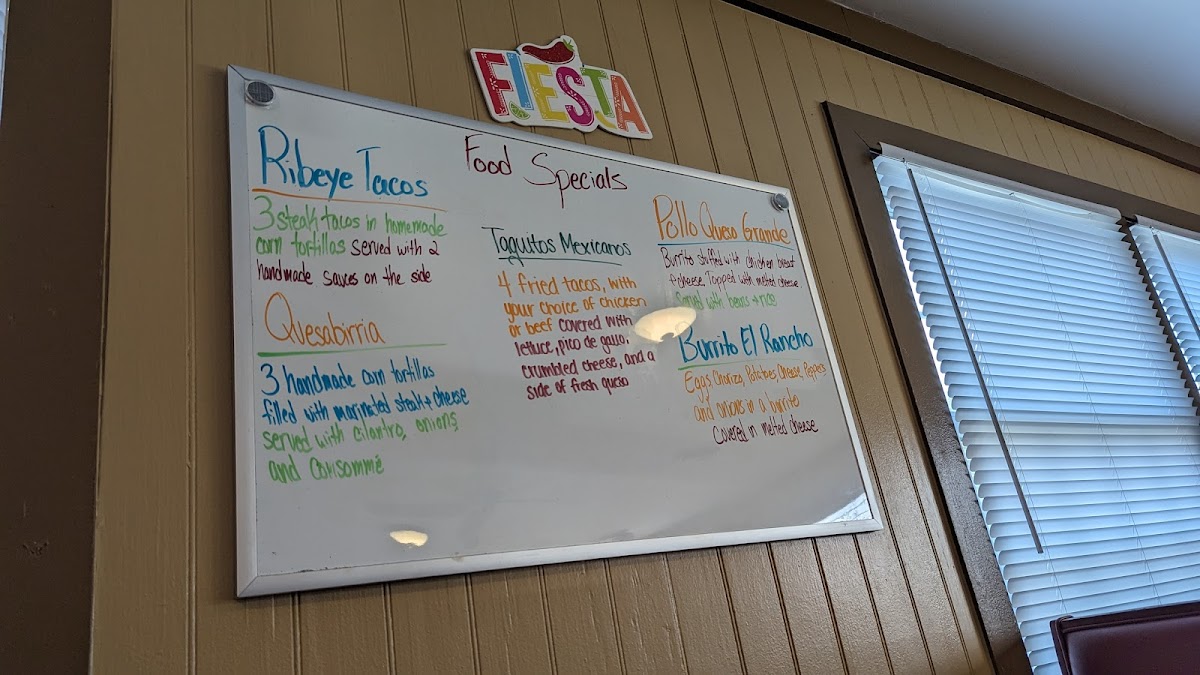 FIESTA
Food Specials
Ribeye Tacos
3 steak tacos in homemade
corn tortillas served with 2
handmade sauces on the side
Quesabirria
3 handmade corn tortillas
filled with marinated steak + cheese
served with cilantro, onions,
and consommé
Taquitos Mexicanos
4 fried tacos, with
your choice of chicken
or beef covered with
lettuce, pico de gallo,
crumbled cheese, and a
side of fresh queso
Pollo Queso Grande
Burrito stuffed with chicken breast
+ cheese. Topped with melted cheese.
Served with beans + rice
Burrito El Rancho
Eggs, Chorizo, Potatoes, Cheese, Peppers
and onions in a burrito
Covered in melted cheese